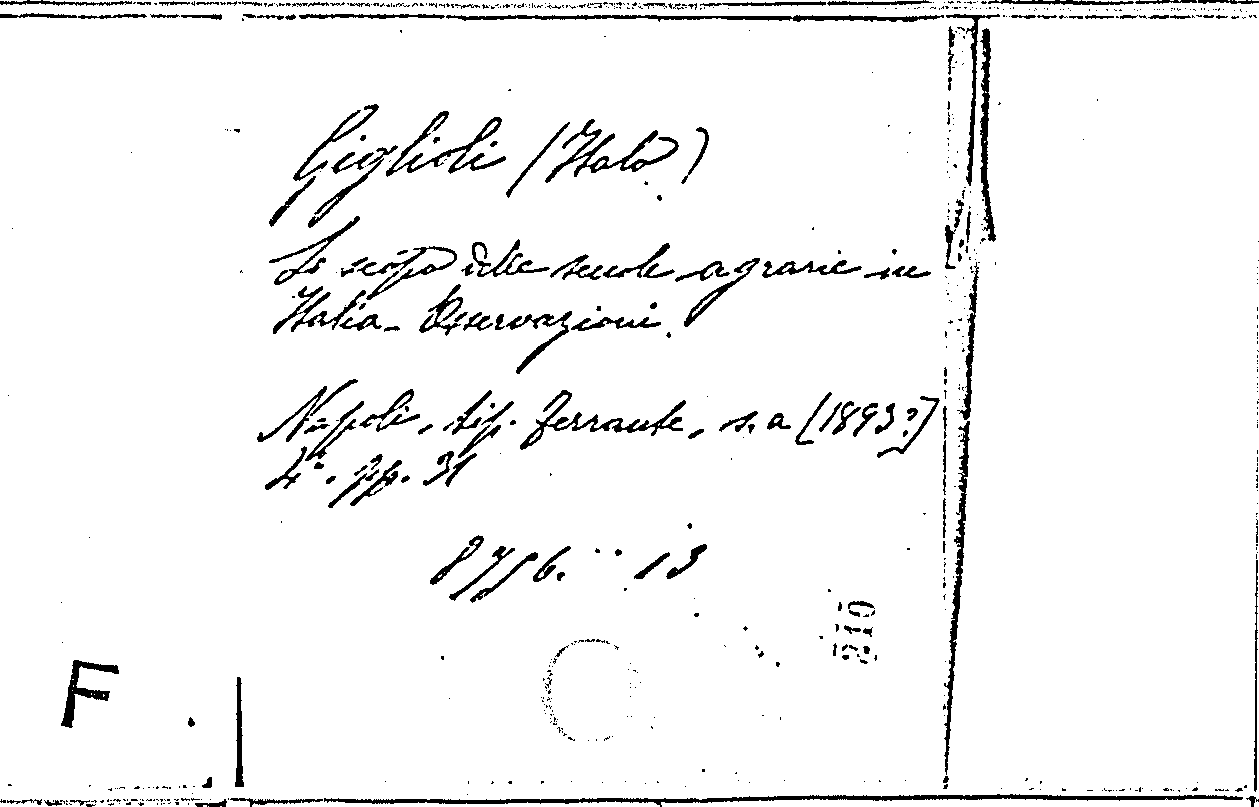 Giglioli (Italo)
Lo scopo delle scuole agrarie in
Italia - Osservazioni.
Napoli, tip. Ferrante, s. a [1893?]
4°. pp. 31
8756. 13
210
F